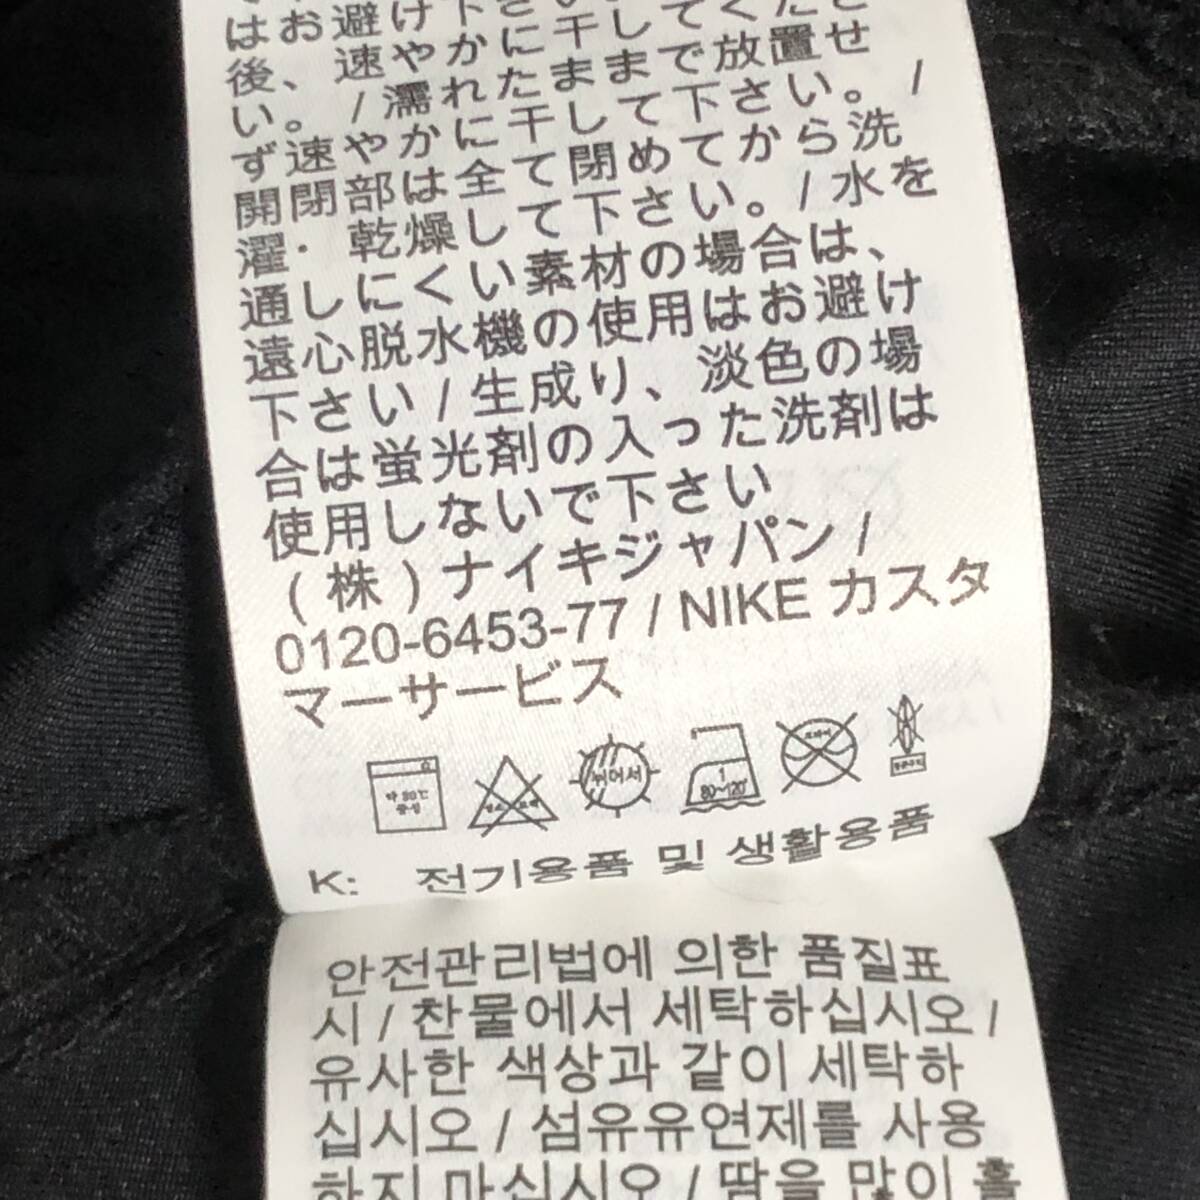 はお避け下さい
後、速やかに干してくださ
い。/濡れたままで放置せ
ず速やかに干して下さい。/
開閉部は全て閉めてから洗
濯・乾燥して下さい。/水を
通しにくい素材の場合は、
遠心脱水機の使用はお避け
下さい/生成り、淡色の場
合は蛍光剤の入った洗剤は
使用しないで下さい
(株)ナイキジャパン/
0120-6453-77 / NIKE カスタ
マーサービス
약 30℃ 중성
뉘어서
1 80~120℃
드라이
K: 전기용품 및 생활용품
안전관리법에 의한 품질표
시 / 찬물에서 세탁하십시오 /
유사한 색상과 같이 세탁하
십시오 / 섬유유연제를 사용
하지 마십시오 / 땀을 많이 흘